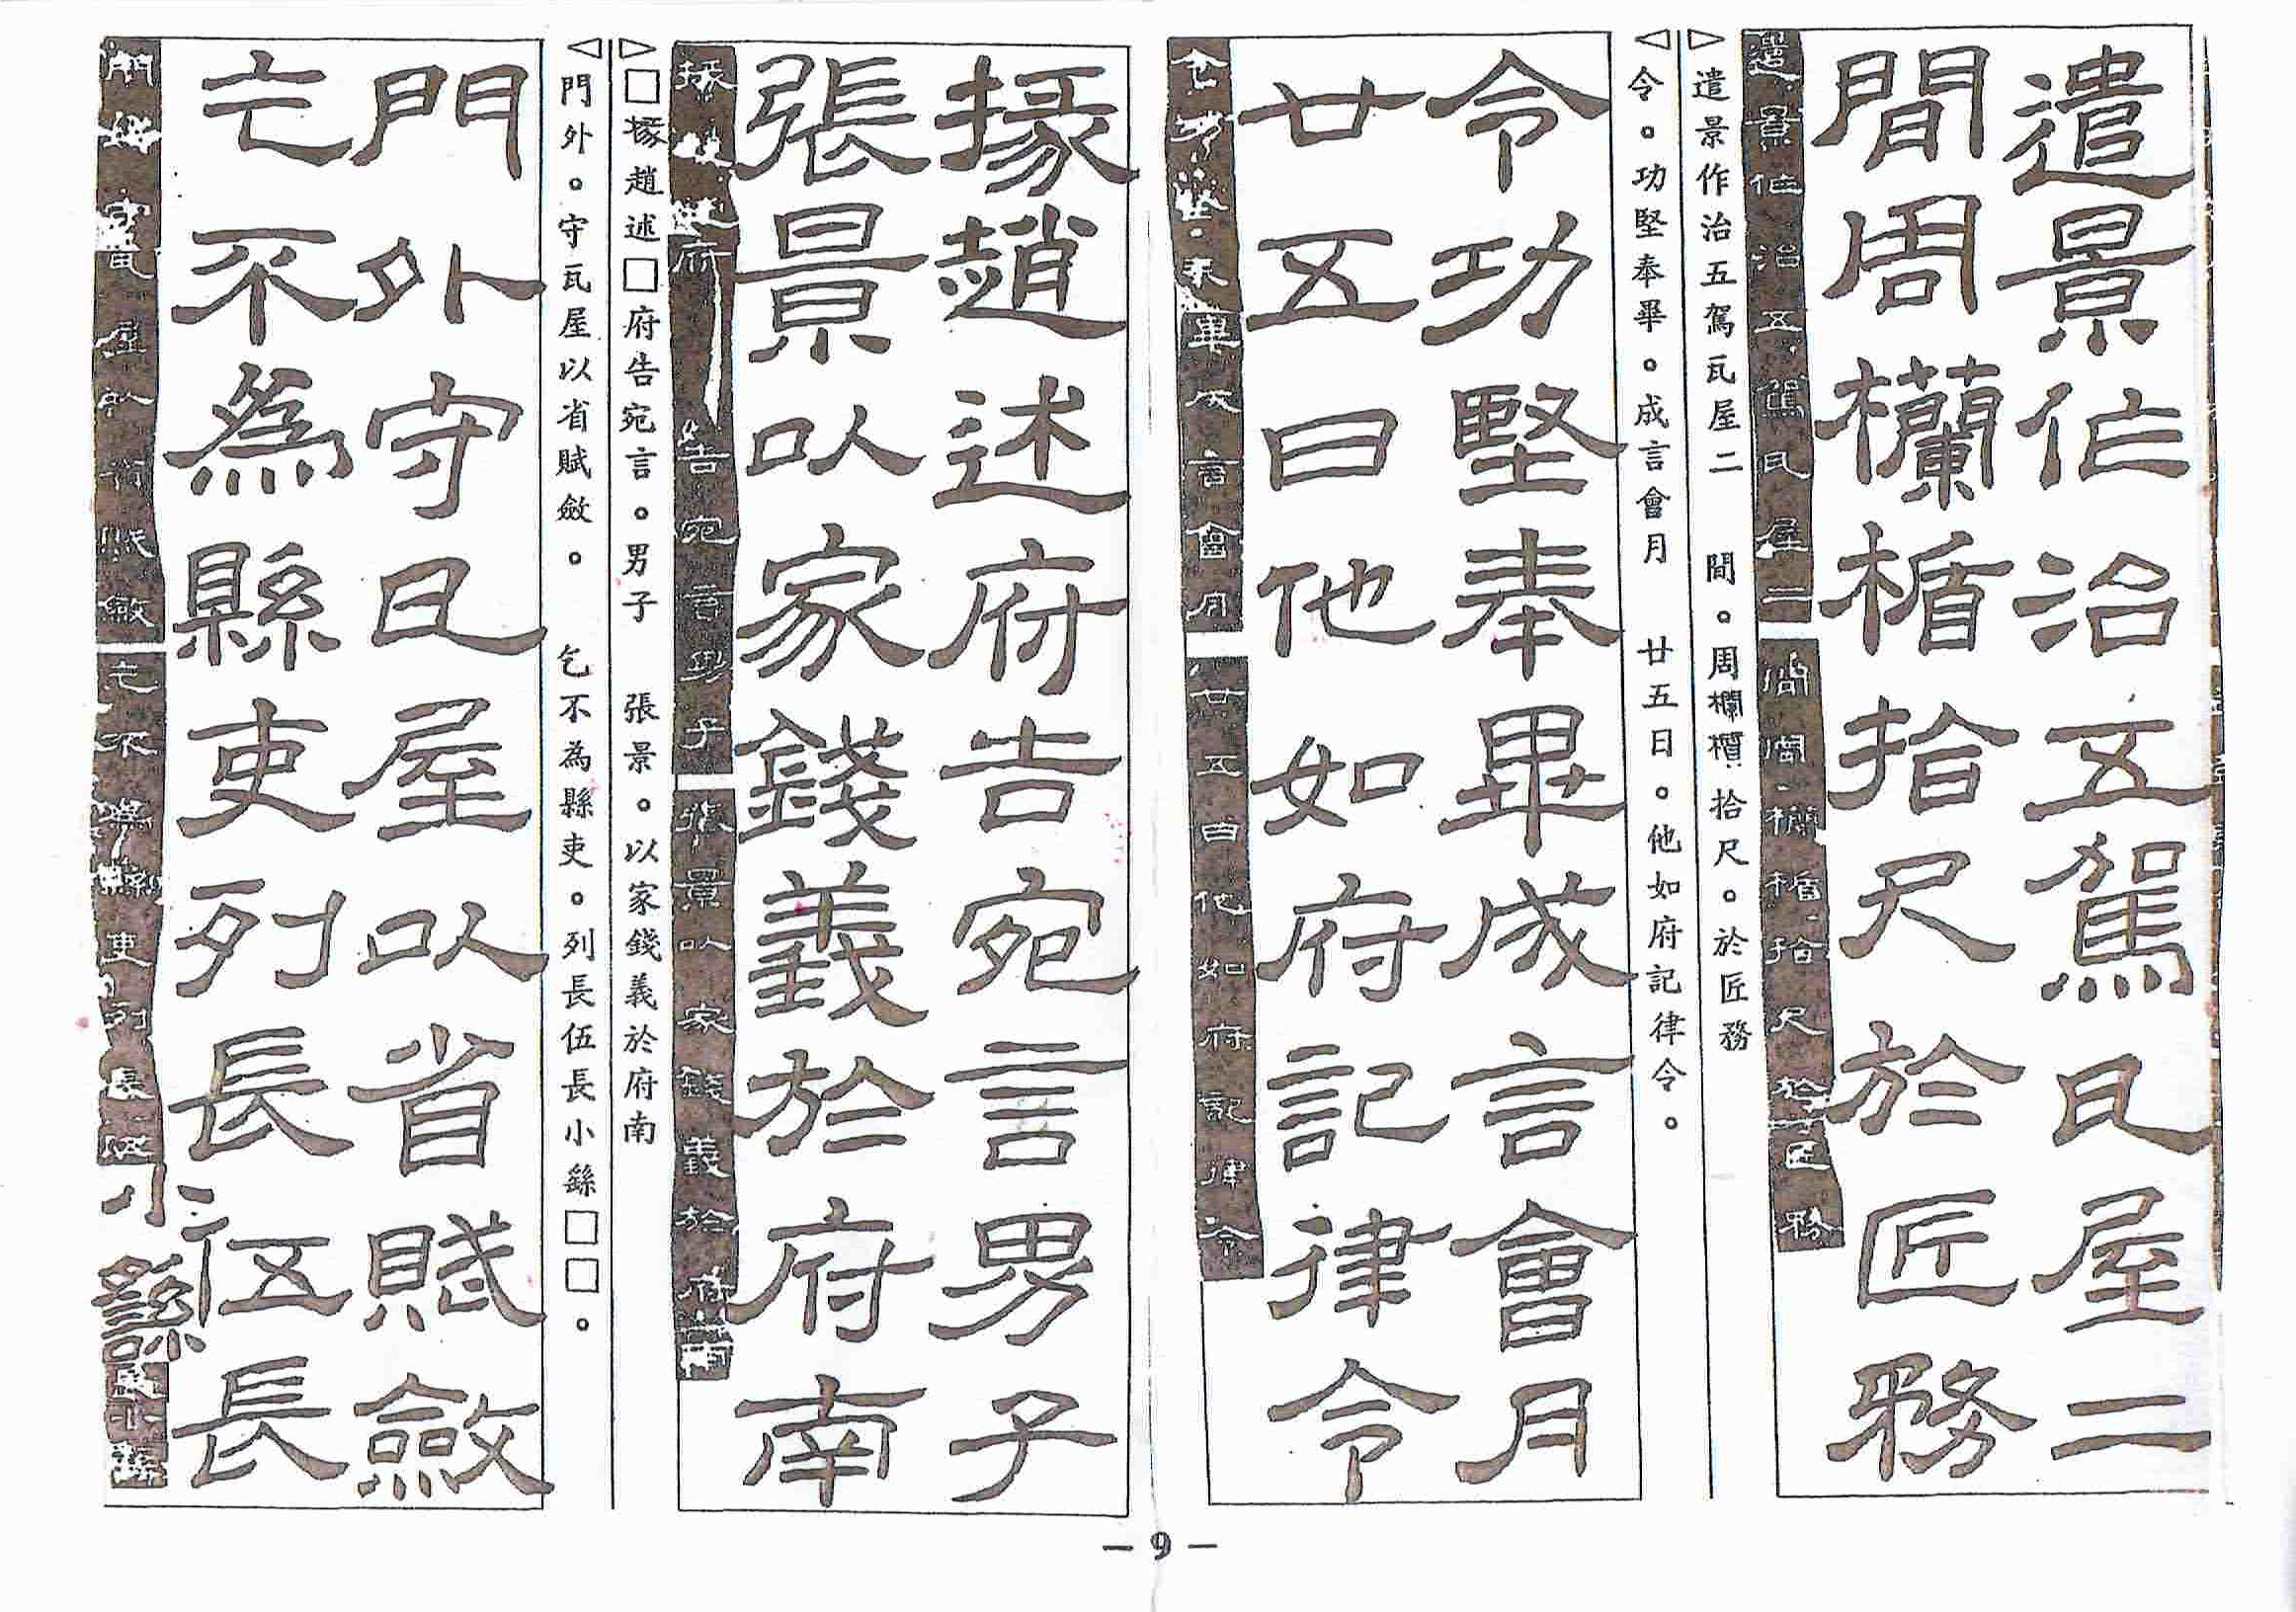 遣景作治五駕瓦屋二
間周欄楯拾尺於匠務
▷遣景作治五駕瓦屋二　間。周欄櫝拾尺。於匠務
◁令。功堅奉畢。成言會月　廿五日。他如府記律令。
令功堅奉畢成言會月
廿五日他如府記律令
掾趙述府告宛言男子
張景以家錢義於府南
▷□掾趙述□府告宛言。男子　張景。以家錢義於府南
◁門外。守瓦屋以省賦斂。　乞不為縣吏。列長伍長小繇□□。
門外守瓦屋以省賦斂
乞不為縣吏列長伍長
小繇
—9—